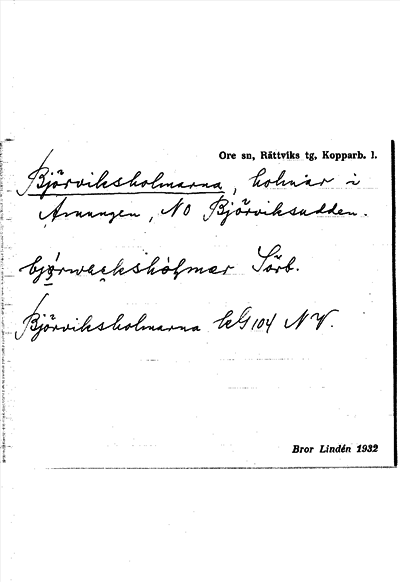 Ore sn, Rättviks tg, Kopparb. l.
Björviksholmarna, holmar i
Amungen, NO Björviksudden.
Sörb.
Björviksholmarna 104 NV.
Bror Lindén 1932